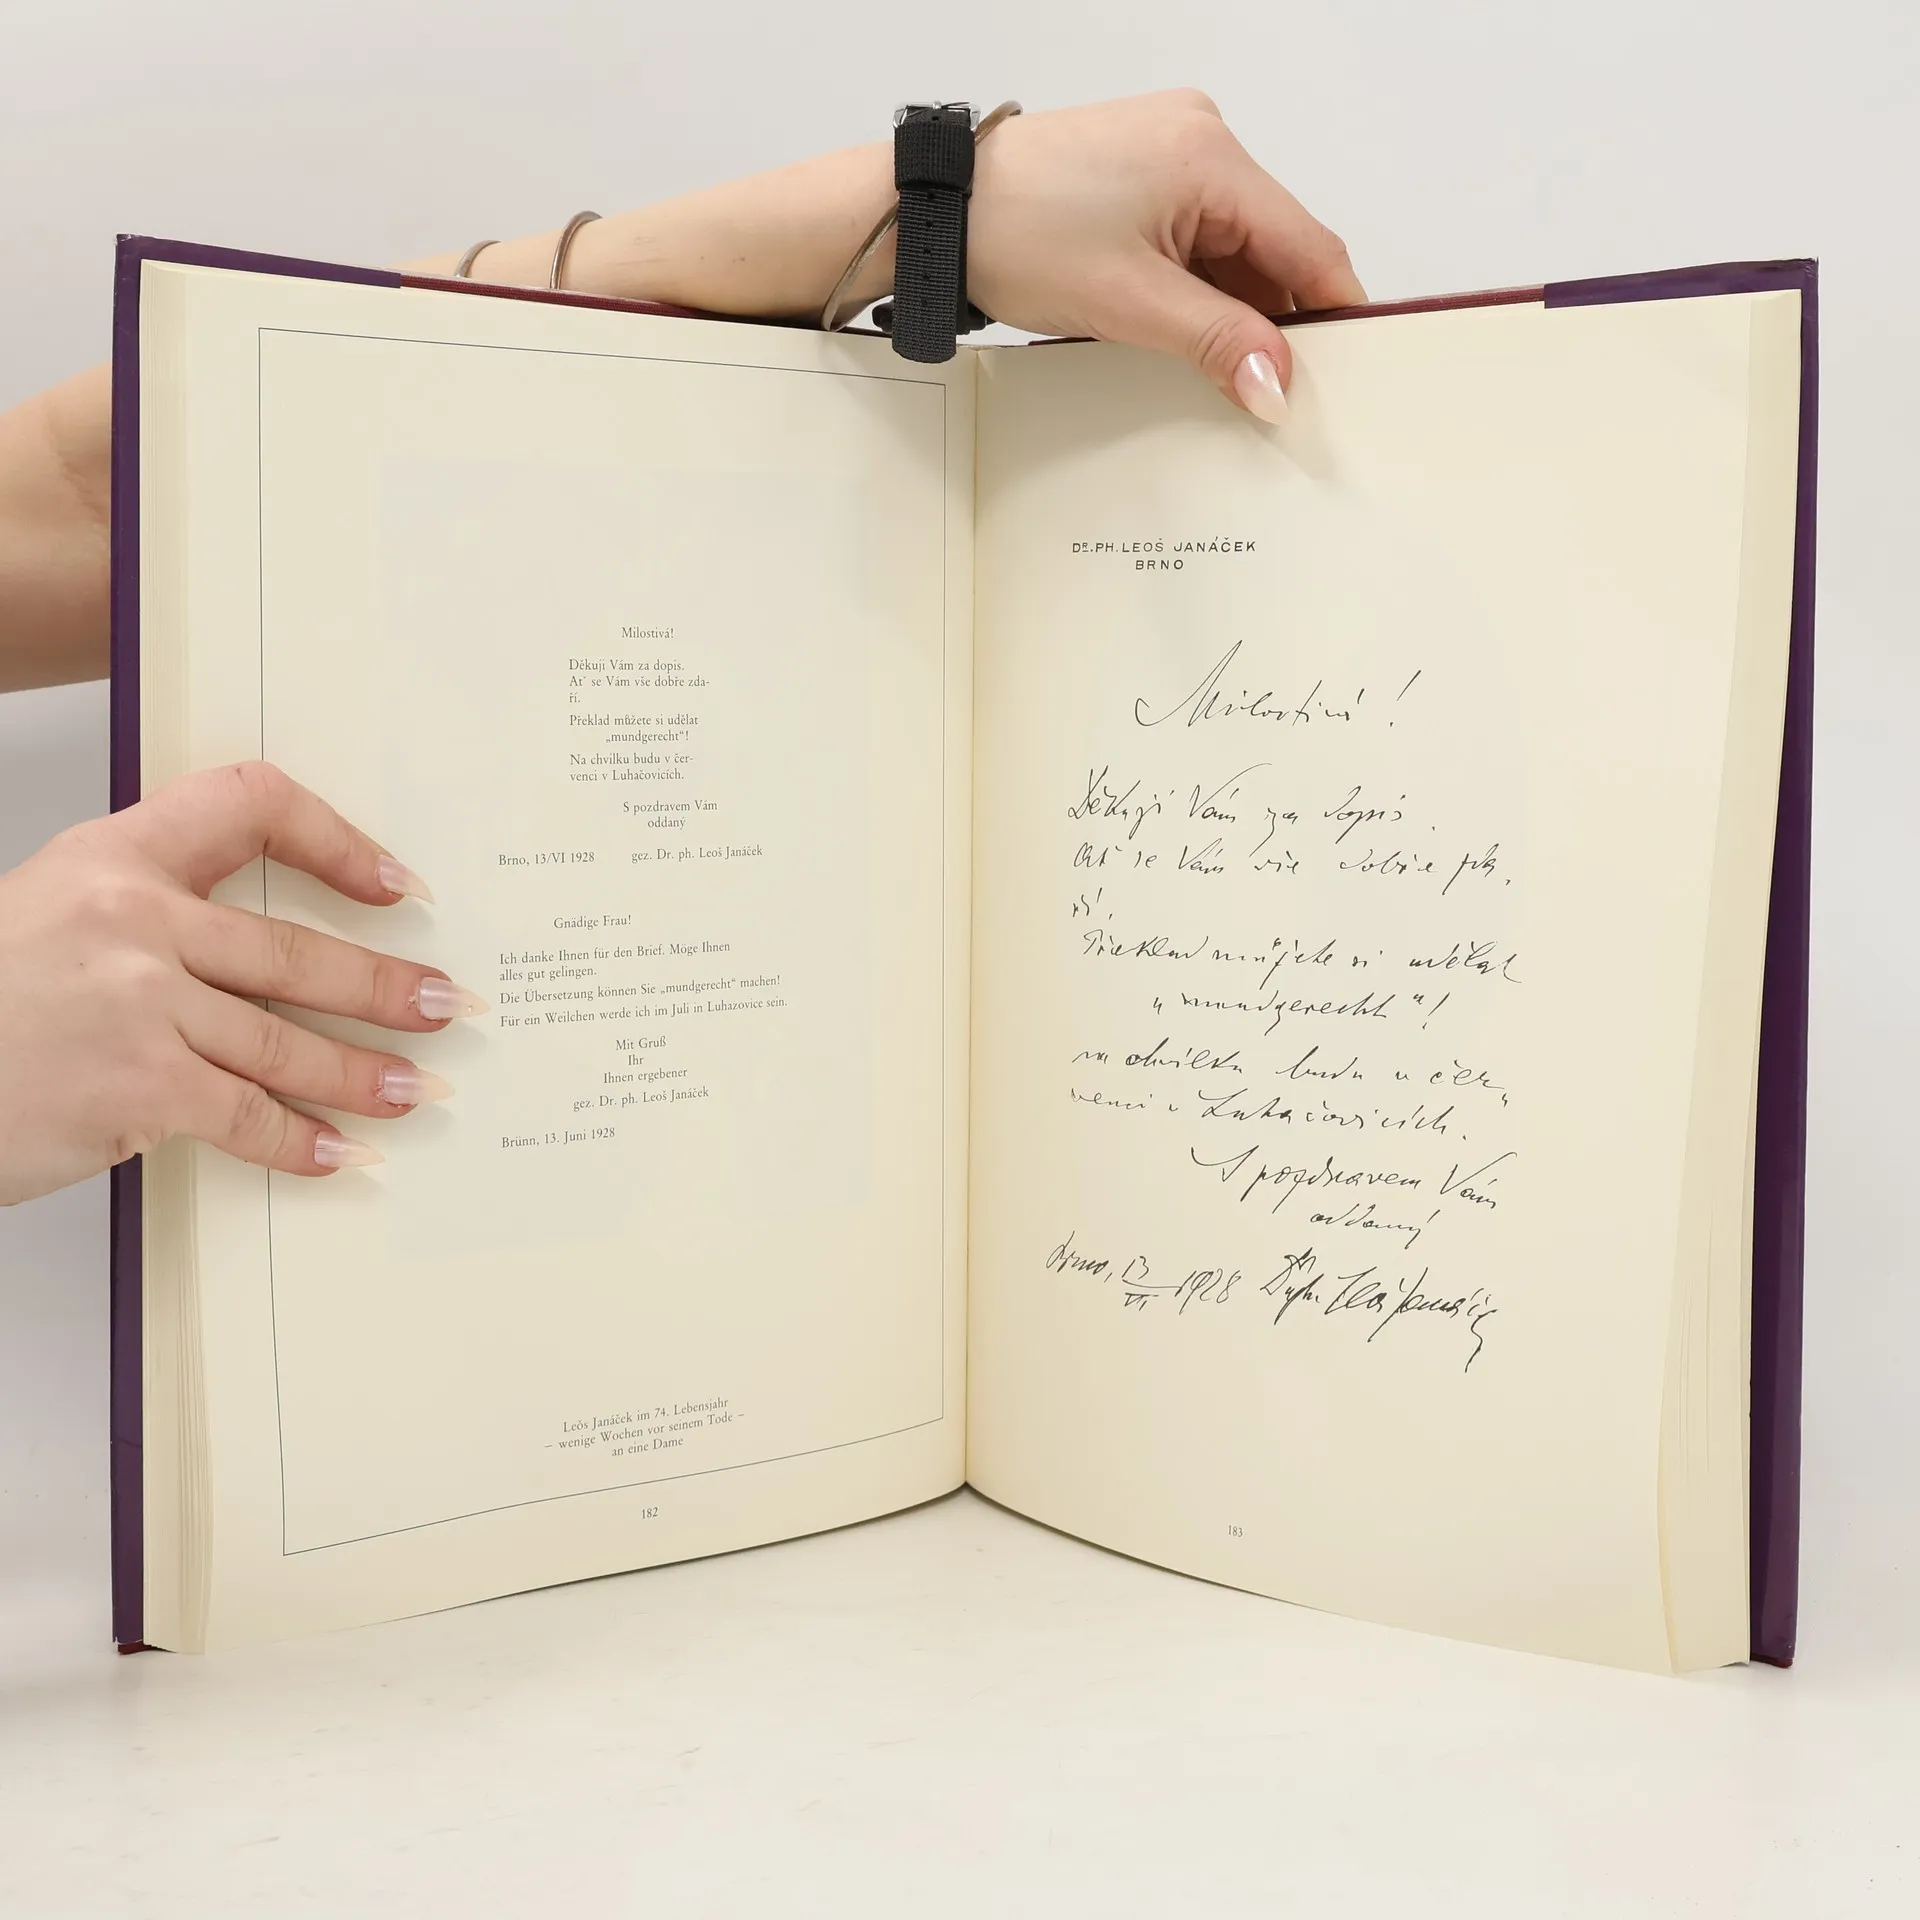 Milostivá!
Děkuji Vám za dopis.
Ať se Vám vše dobře zda-
ří.
Překlad můžete si udělat
„mundgerecht“!
Na chvilku budu v čer-
venci v Luhačovicích.
S pozdravem Vám
oddaný
Brno, 13/VI 1928 gez. Dr. ph. Leoš Janáček
Gnädige Frau!
Ich danke Ihnen für den Brief. Möge Ihnen
alles gut gelingen.
Die Übersetzung können Sie „mundgerecht“ machen!
Für ein Weilchen werde ich im Juli in Luhazovice sein.
Mit Gruß
Ihr
Ihnen ergebener
gez. Dr. ph. Leoš Janáček
Brünn, 13. Juni 1928
Leoš Janáček im 74. Lebensjahr
– wenige Wochen vor seinem Tode –
an eine Dame
182
DR.PH. LEOŠ JANÁČEK
BRNO
Milostivá!
Děkuji Vám za dopis.
Ať se Vám vše dobře zda-
ří.
Překlad můžete si udělat
„mundgerecht“!
na chvilku budu v čer„
venci v Luhačovicích.
S pozdravem Vám
oddaný
Brno, 13/VI 1928 Drph. Leoš Janáček
183